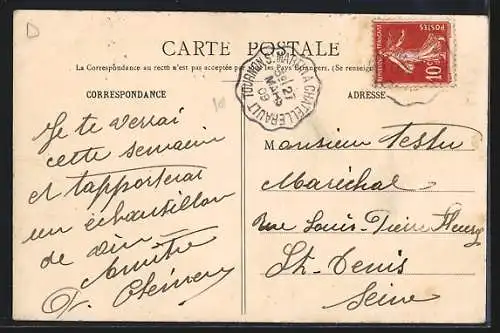 D
CARTE POSTALE
La Correspondance au recto n'est pas acceptée par tous les Pays Étrangers. (Se renseigner
CORRESPONDANCE
ADRESSE
TOURNON S. MARTIN A CHATELLERAULT
27
MARS
09
POSTES
10c
Je te verrai
cette semaine
et t'apporterai
un échantillon
de vin
Amitié
Monsieur Testu
Maréchal
Rue Louis-Pierre Fleury
St-Denis
Seine